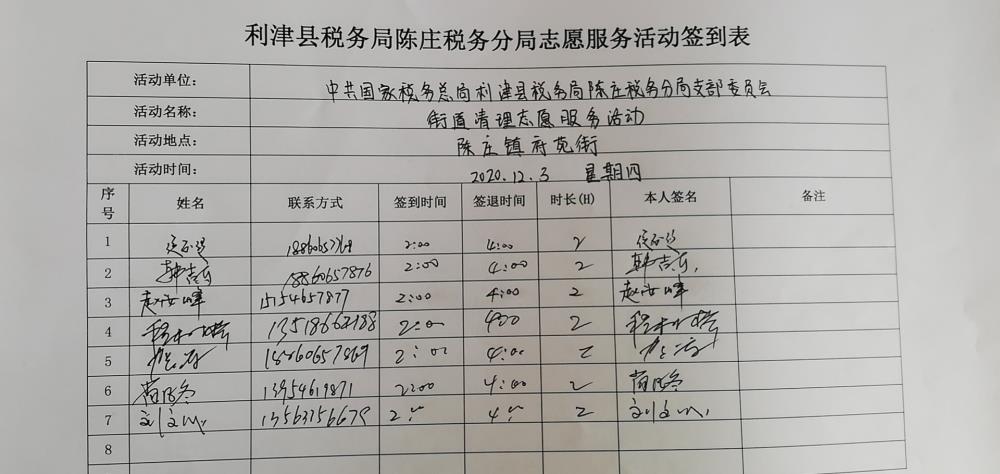 利津县税务局陈庄税务分局志愿服务活动签到表
活动单位： 中共国家税务总局利津县税务局陈庄税务分局支部委员会
活动名称： 街道清理志愿服务活动
活动地点： 陈庄镇府苑街
活动时间： 2020.12.3 星期四
序号 姓名 联系方式 签到时间 签退时间 时长(H) 本人签名 备注
1 2:00 4:00 2
2 韩吉乐 18860657876 2:00 4:00 2 韩吉乐
3 赵汝峰 15154657877 2:00 4:00 2 赵汝峰
4 2:00 400 2
5 18860657869 2:00 4:00 2
6 13954619871 2:00 4:00 2
7 刘文 2 4 2 刘文
8